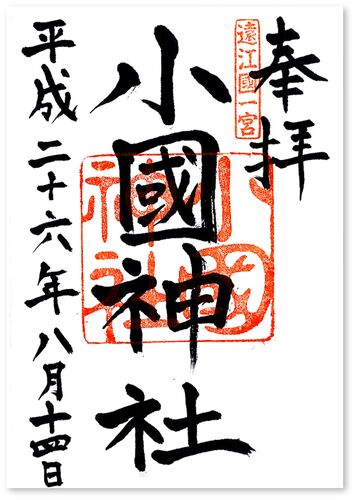 奉拝
遠江國一宮
小國神社
小國神社
平成二十六年八月十四日